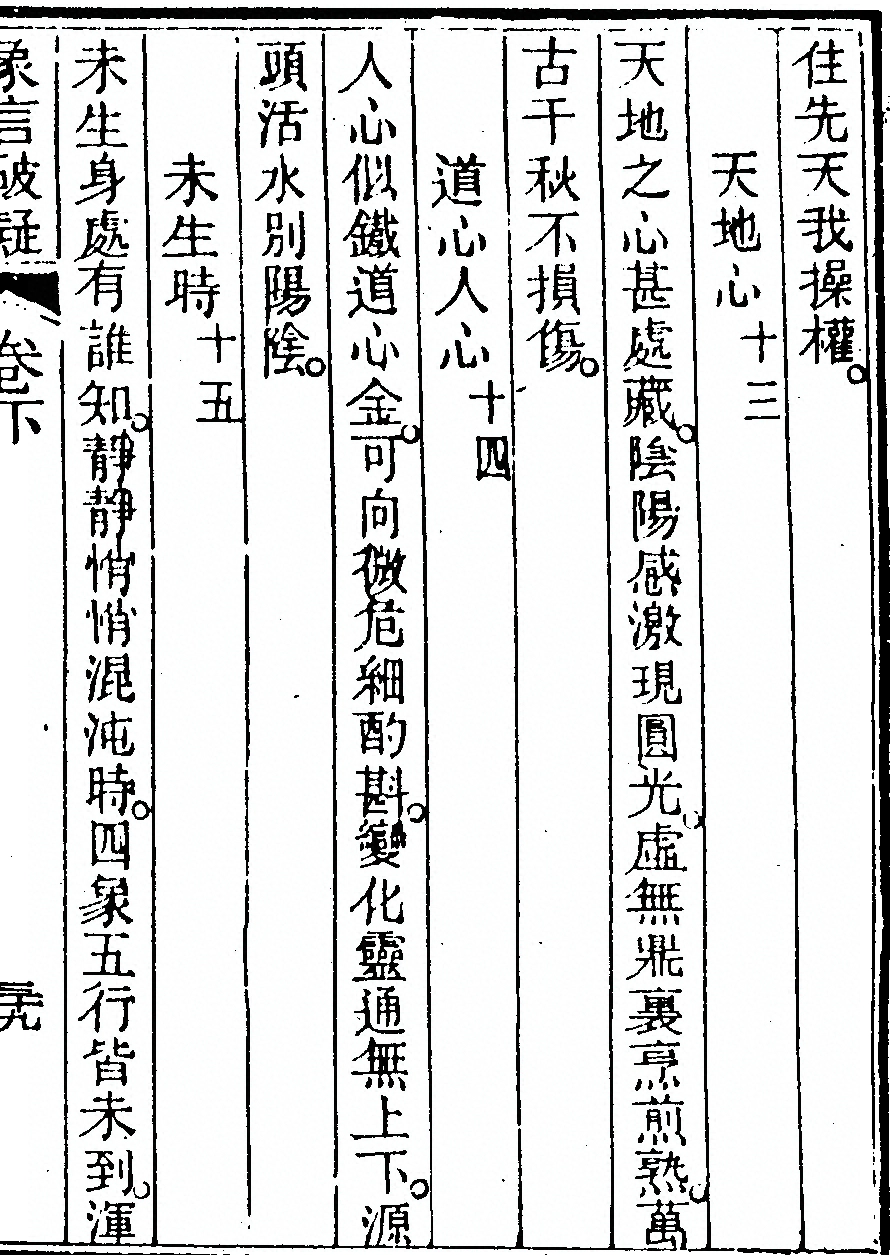 住先天我操權。
天地心十三
天地之心甚處藏。陰陽感激現圓光。虛無鼎裏烹煎熟。萬
古千秋不損傷。
道心人心十四
人心似鐵道心金。可向微危細酌斟。變化靈通無上下。源
頭活水別陽陰。
未生時十五
未生身處有誰知。靜靜悄悄混沌時。四象五行皆未到。渾
象言破疑 卷下 三十九